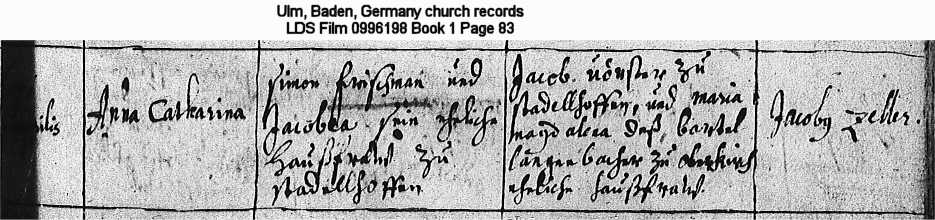 Ulm, Baden, Germany church records
LDS Film 0996198 Book 1 Page 83
ilis
Anna Catharina
Simon Frischman und
Jacobea sein eheliche
Haußfraw zu
Stadellhoffen
Jacob. Vörster zu
Stadellhoffen, und Maria
Magdalena deß bartel
langenbacher zu oberkirch
eheliche haußfraw.
Jacoby Zeller.